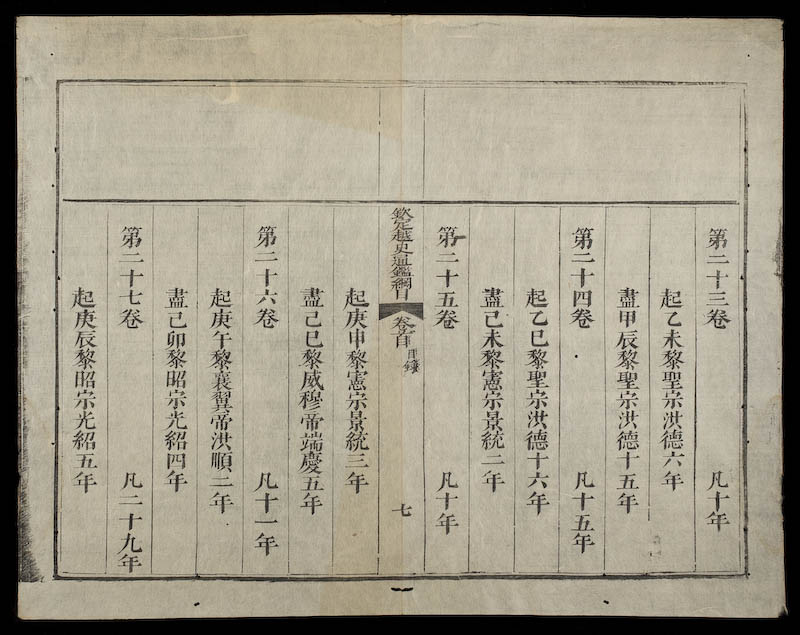 第二十三卷 凡十年
起乙未黎聖宗洪德六年
盡甲辰黎聖宗洪德十五年
第二十四卷 凡十五年
起乙巳黎聖宗洪德十六年
盡己未黎憲宗景統二年
第二十五卷 凡十年
起庚申黎憲宗景統三年
盡己巳黎威穆帝端慶五年
第二十六卷 凡十一年
起庚午黎襄翼帝洪順二年
盡己卯黎昭宗光紹四年
第二十七卷 凡二十九年
起庚辰黎昭宗光紹五年
欽定越史通鑑綱目 卷之首 目錄 七